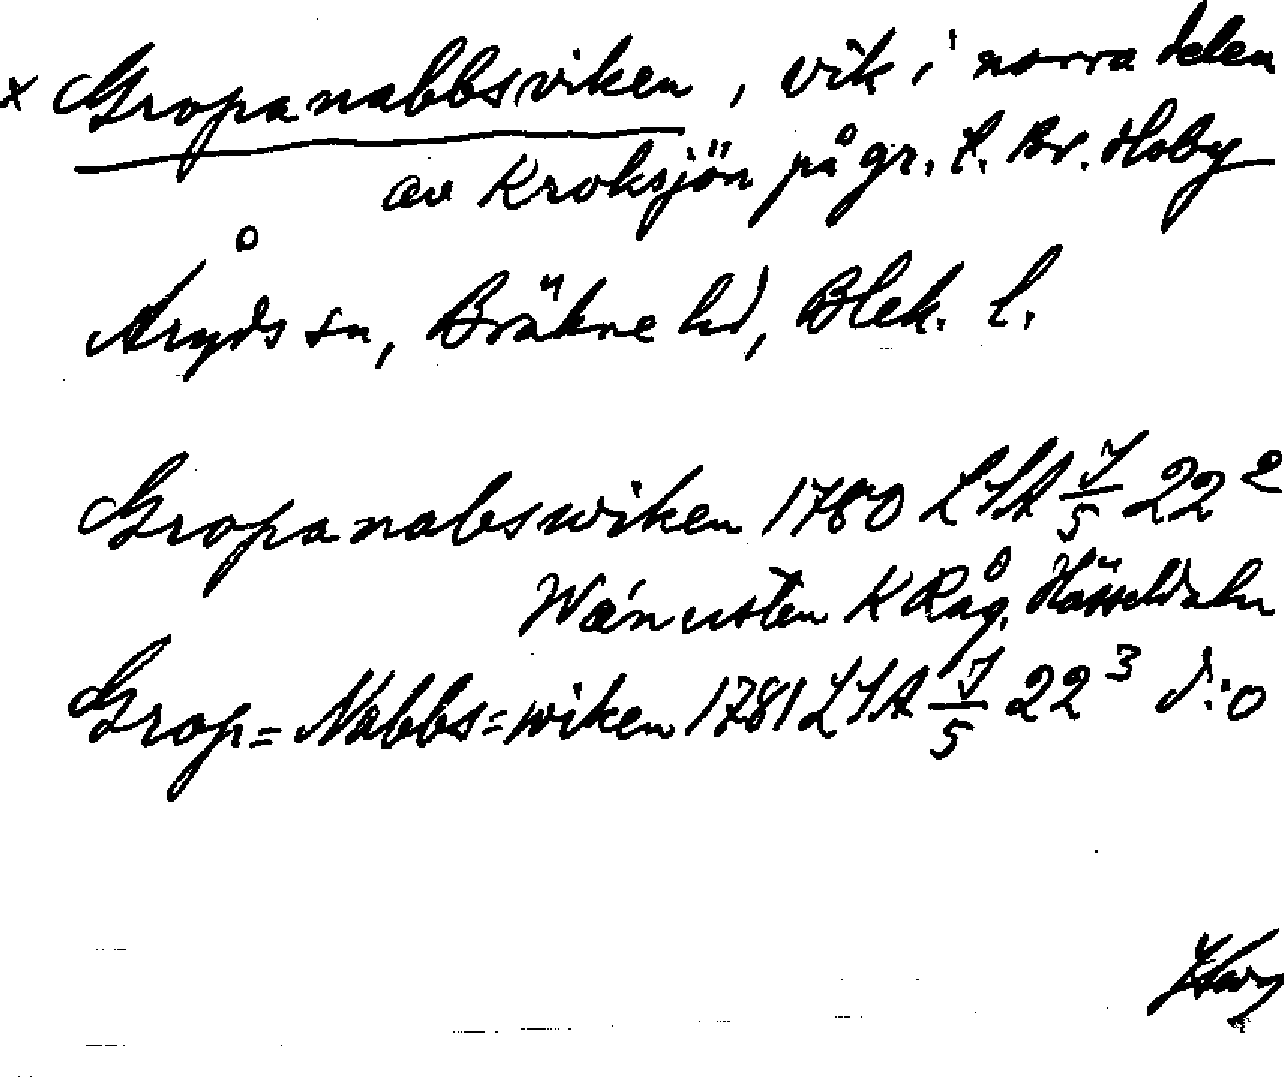 x Gropanabbsviken, vik i norra delen
av Kroksjön på gr. t. Br. Hoby
Åryds sn, Bräkne hd, Blek. l.
Gropanabswiken 1780 LSA J/5 22²
KRåg. Hässeldalen
Grop=Nabbs=wiken 1781 LSA J/5 22³ d:o